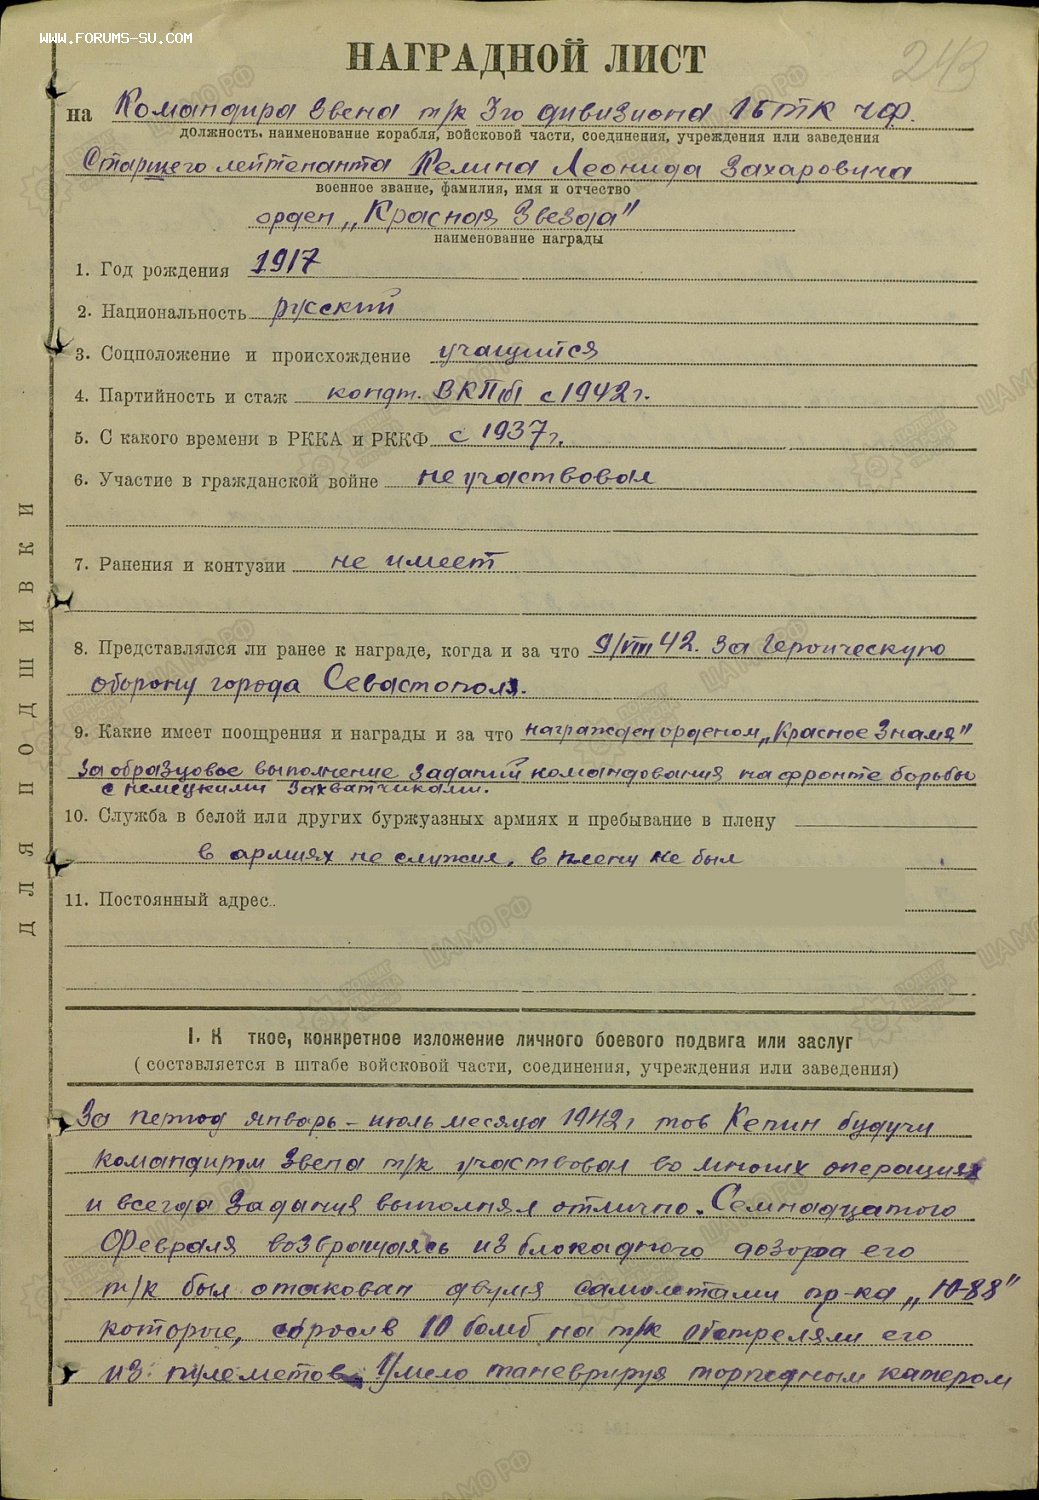 WWW.FORUMS-SU.COM
243
НАГРАДНОЙ ЛИСТ
на Командира звена т/к 3го дивизиона 1БТК ЧФ.
должность, наименование корабля, войсковой части, соединения, учреждения или заведения
Старшего лейтенанта Келина Леонида Захаровича
военное звание, фамилия, имя и отчество
орден „Красная Звезда"
наименование награды
1. Год рождения 1917
2. Национальность русский
3. Соцположение и происхождение учащийся
4. Партийность и стаж кондт. ВКП(б) с 1942 г.
5. С какого времени в РККА и РККФ с 1937 г.
6. Участие в гражданской войне не участвовал
7. Ранения и контузии не имеет
8. Представлялся ли ранее к награде, когда и за что 9/VIII 42. за героическую
оборону города Севастополя.
9. Какие имеет поощрения и награды и за что награжден орденом „Красное Знамя"
за образцовое выполнение заданий командования на фронте борьбы
с немецкими захватчиками.
10. Служба в белой или других буржуазных армиях и пребывание в плену
в армиях не служил, в плену не был
11. Постоянный адрес
ДЛЯ ПОДШИВКИ
I. К ткое, конкретное изложение личного боевого подвига или заслуг
(составляется в штабе войсковой части, соединения, учреждения или заведения)
За период январь – июль месяца 1942 г тов Келин будучи
командиром звена т/к участвовал во многих операциях
и всегда задания выполнял отлично. Семнадцатого
февраля возвращаясь из блокадного дозора его
т/к был атакован двумя самолетами пр-ка „Ю-88"
которые, сбросив 10 бомб на т/к обстреляли его
из пулеметов. Умело маневрируя торпедным катером